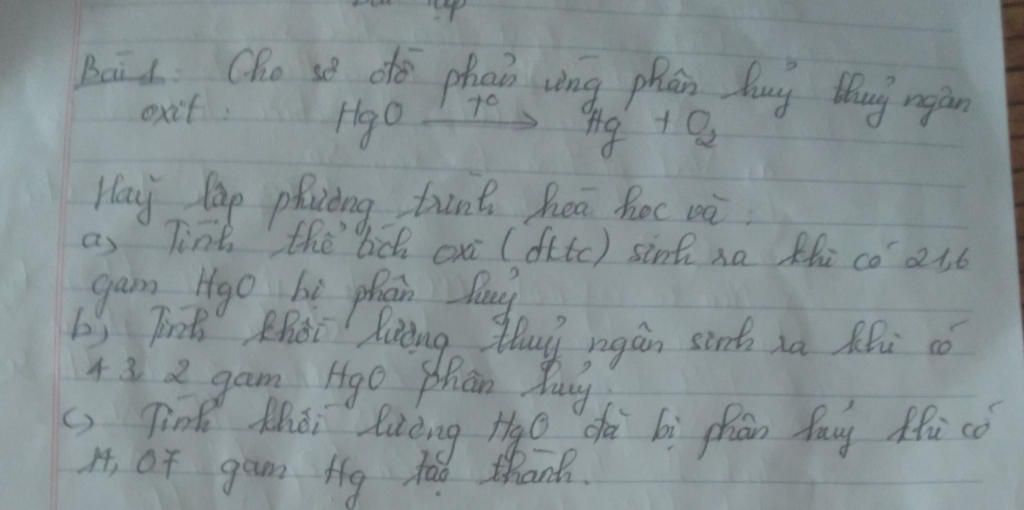 Bài 1: Cho sơ đồ phản ứng phân huỷ thuỷ ngân
oxit: HgO t° → Hg + O2
Hãy lập phương trình hoá học và:
a, Tính thể tích oxi (đktc) sinh ra khi có 21,6
gam HgO bị phân huỷ
b, Tính khối lượng thuỷ ngân sinh ra khi có
43,2 gam HgO phân huỷ.
c, Tính khối lượng HgO đã bị phân huỷ khi có
,07 gam Hg tạo thành.